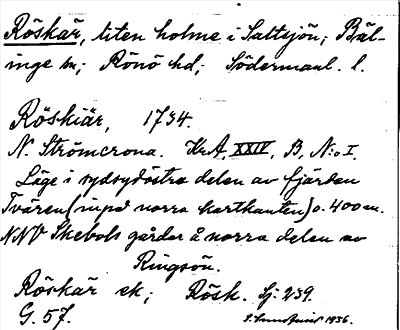 Röskär, liten holme i Saltsjön; Bäl-
inge sn; Rönö hd; Södermanl. l.
Röskiär, 1734.
N. Strömcrona. Kr.A. XXIV, B, N:o I.
Läge i sydsydöstra delen av fjärden
Tvären (inpå norra kartkanten) o. 400 m.
NNV Skebols gårdar å norra delen av
Ringsön.
Röskär ek; Rösk. Sj. 239.
G. 57. 1936.